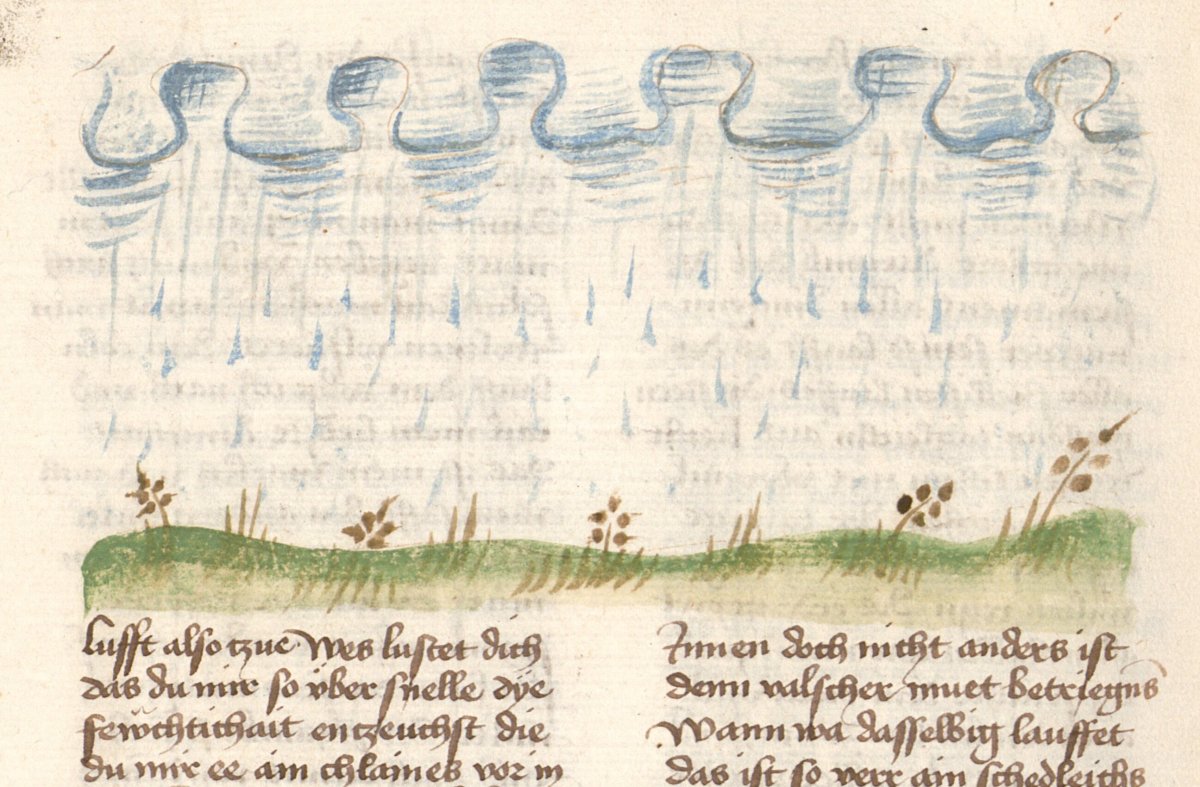 lufft also tzue Wes lustet dich
das du mir so über snelle dye
fewchtichait entzeuchst die
du mir ee ain chlaines vor in
Innen doch nicht anders ist
denn valscher muet betriegns
Wann wa dasselbig lauffet
das ist so verr ain schedleichs